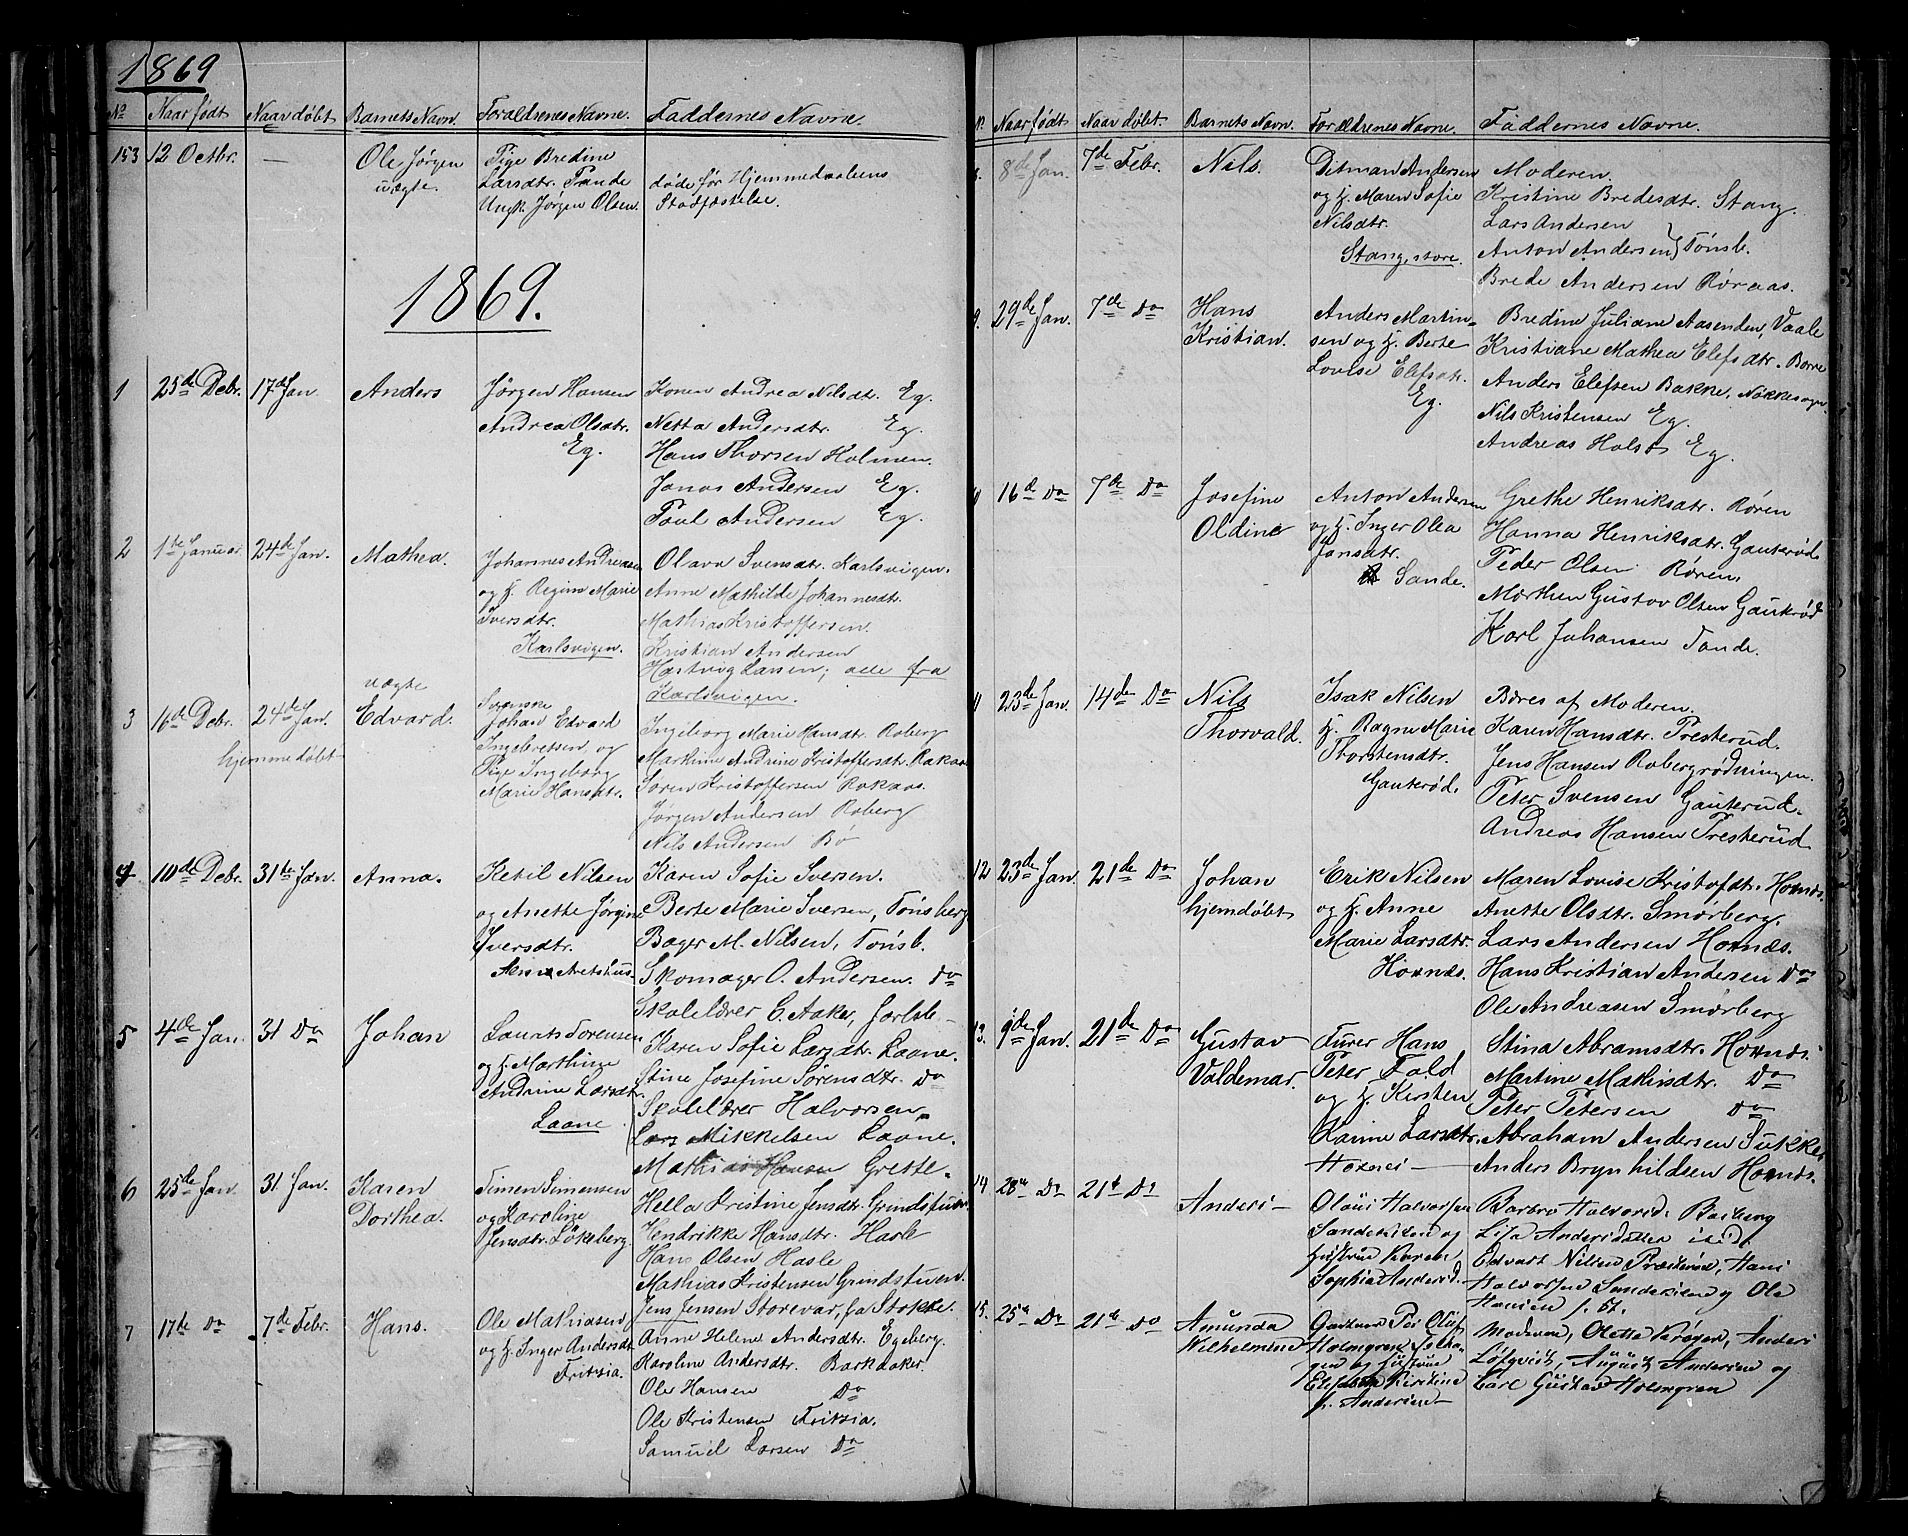 1869
No Naar født Naar døbt Barnets Navn. Foraldrenes Navne. Faddernes Navne.
153 12 Octbr. — Ole Jørgen uægte.
Pige Bredine
Larsdtr. Tande
Ungk. Jørgen Olsen.
døde før Hjemmedaabens
Stadfæstelse.
1869.
1 25de Debr. 17de Jan Anders
Jørgen Hansen
Andrea Olsdtr.
Eg.
Konen Andrea Nilsdtr. Eg.
Netta Andersdtr. Eg.
Hans Thorsen Holmen.
Jonas Andersen Eg.
Paul Andersen Eg.
2 1ste Januar. 24de Jan. Mathea.
Johannes Andreasen
og H. Regine Marie
Iversdtr.
Karlsvigen.
Olava Svensdtr. Karlsvigen.
Anne Mathilde Johannesdtr.
Mathias Kristoffersen.
Kristian Andersen
Hartvig Larsen; alle fra
Karlsvigen.
3 16de Debr. 24de Jan. uægte Edvard.
hjemmedøbt
Svenske
Johan Edvard
Ingebretsen, og
Pige Ingeborg
Marie Hansdtr.
Ingeborg Marie Hansdtr. Roberg
Marthine Andrine Kristoffersdtr. Rakaas
Søren Kristoffersen Rakaas.
Jørgen Andersen Roberg
Nils Andersen Bø
4 10de Debr. 31te Jan. Anna.
Ketil Nilsen
og Anette Jørgine
Iversdtr.
Karen Sofie Iversen.
Berte Marie Iversen, Tønsberg
Bager M. Nilsen, Tønsb.
Skomager O. Andersen. Do
Skolelærer C. Aaker, Jarlsb—
5 4de Jan. 31 Do Johan
Laurits Sorensen
og H. Marthine
Andrine Larsdtr.
Laane
Karen Sofie Larsdtr. Laane.
Stine Josefine Sørensdtr. Do
Skolelærer Halvorsen
Lars Mikkelsen Laane.
Mathias Hansen Grette
6 25de Jan. 31 Jan. Karen
Dorthea.
Simen Simensen
og Karoline
Jensdtr. Løkeberg.
Hella Kristine Jensdtr. Grindstuen
Hendrikke Hansdtr. Hasle
Hans Olsen Hasle
Mathias Kristensen Grindstuen.
Jens Jensen Storevar, fra Stokke.
7 17de Do 7de Febr. Hans.
Ole Mathiasen
og H. Inger Andersdtr
Fritzia.
Anne Helene Andersdtr. Egeberg.
Karoline Andersdtr. Barkåker.
Ole Hansen Do
Ole Kristensen Fritzia.
Samuel Larsen Do
N. Naar født Naar døbt. Barnets Navn. Forældrenes Navne. Faddernes Navne.
8. 8de Jan. 7de Febr. Nils.
Ditman Andersen
og H. Maren Sofie
Nilsdtr.
Stang, store.
Moderen.
Kristine Bredesdtr. Stang.
Lars Andersen
Anton Andersen } Tønsb.
Brede Andersen Røraas.
9. 29de Jan. 7de Do Hans
Kristian.
Anders Martin-
sen og H. Berte
Lovise Elefsdtr.
Eg.
Bredine Juliane Aasenden, Vaale
Kristiane Mathea Elefsdtr. Borre
Anders Elefsen Bakke, Nøkkesogn
Nils Kristensen Eg.
Andreas Holst Eg.
16de Do 7de Do Josefine
Oldine
Anton Andersen
og H. Inger Olea
Jonsdtr.
Sande.
Grethe Henriksdtr. Røren
Hanna Henriksdtr. Gauterød
Peder Olsen Røren
Marthen Gustav Olsen Gauterød
Karl Johansen Tande.
11 23de Jan. 14de Do Nils
Thorvald.
Isak Nilsen
H. Ragne Marie
Thorstensdtr.
Gauterød.
Bæres af Moderen.
Karen Hansdtr. Presterud.
Jens Hansen Robergrødningen.
Peter Svensen Gauterud.
Andreas Hansen Presterud
12 23de Jan. 21de Do Johan
hjemdøbt
Erik Nilsen
og H. Anne
Marie Larsdtr.
Hovnæs.
Maren Lovise Kristofdtr. Hovnæs.
Anette Olsdtr. Smørberg.
Lars Andersen Hovnæs.
Hans Kristian Andersen Do
Ole Andreasen Smørberg
13. 9de Jan. 21de Do Gustav
Valdemar.
Furer Hans
Peter Fald
og H. Kirsten
Karine Larsdtr.
Hovnes —
Stina Abramsdtr. Hovnæs
Martine Mathisdtr. Do
Peter Petersen Do
Abraham Andersen Sukke
Anders Brynhildsen Hovnæs.
14 28de Do 21de Do Anders —
Olaus Halvorsen
Sandeskien og
Hustrue Karen
Sophie Andersd.
Barbro Halvorsd. Barberg
Lisa Andersdatter
Edvart Nilsen Præsterød, Hans
Halvorsen Sandeskien og Ole
Hansen
15. 25de Do 21de Do Amunda
Wilhelmine
Gartner Per Oluf
Holmgren
og Hustrue
Elisabeth Kirstine
f. Andersen —
Moderen, Olette Krøger, Anders
Løfqvist, August Andersen og
Carl Gustav Holmgren